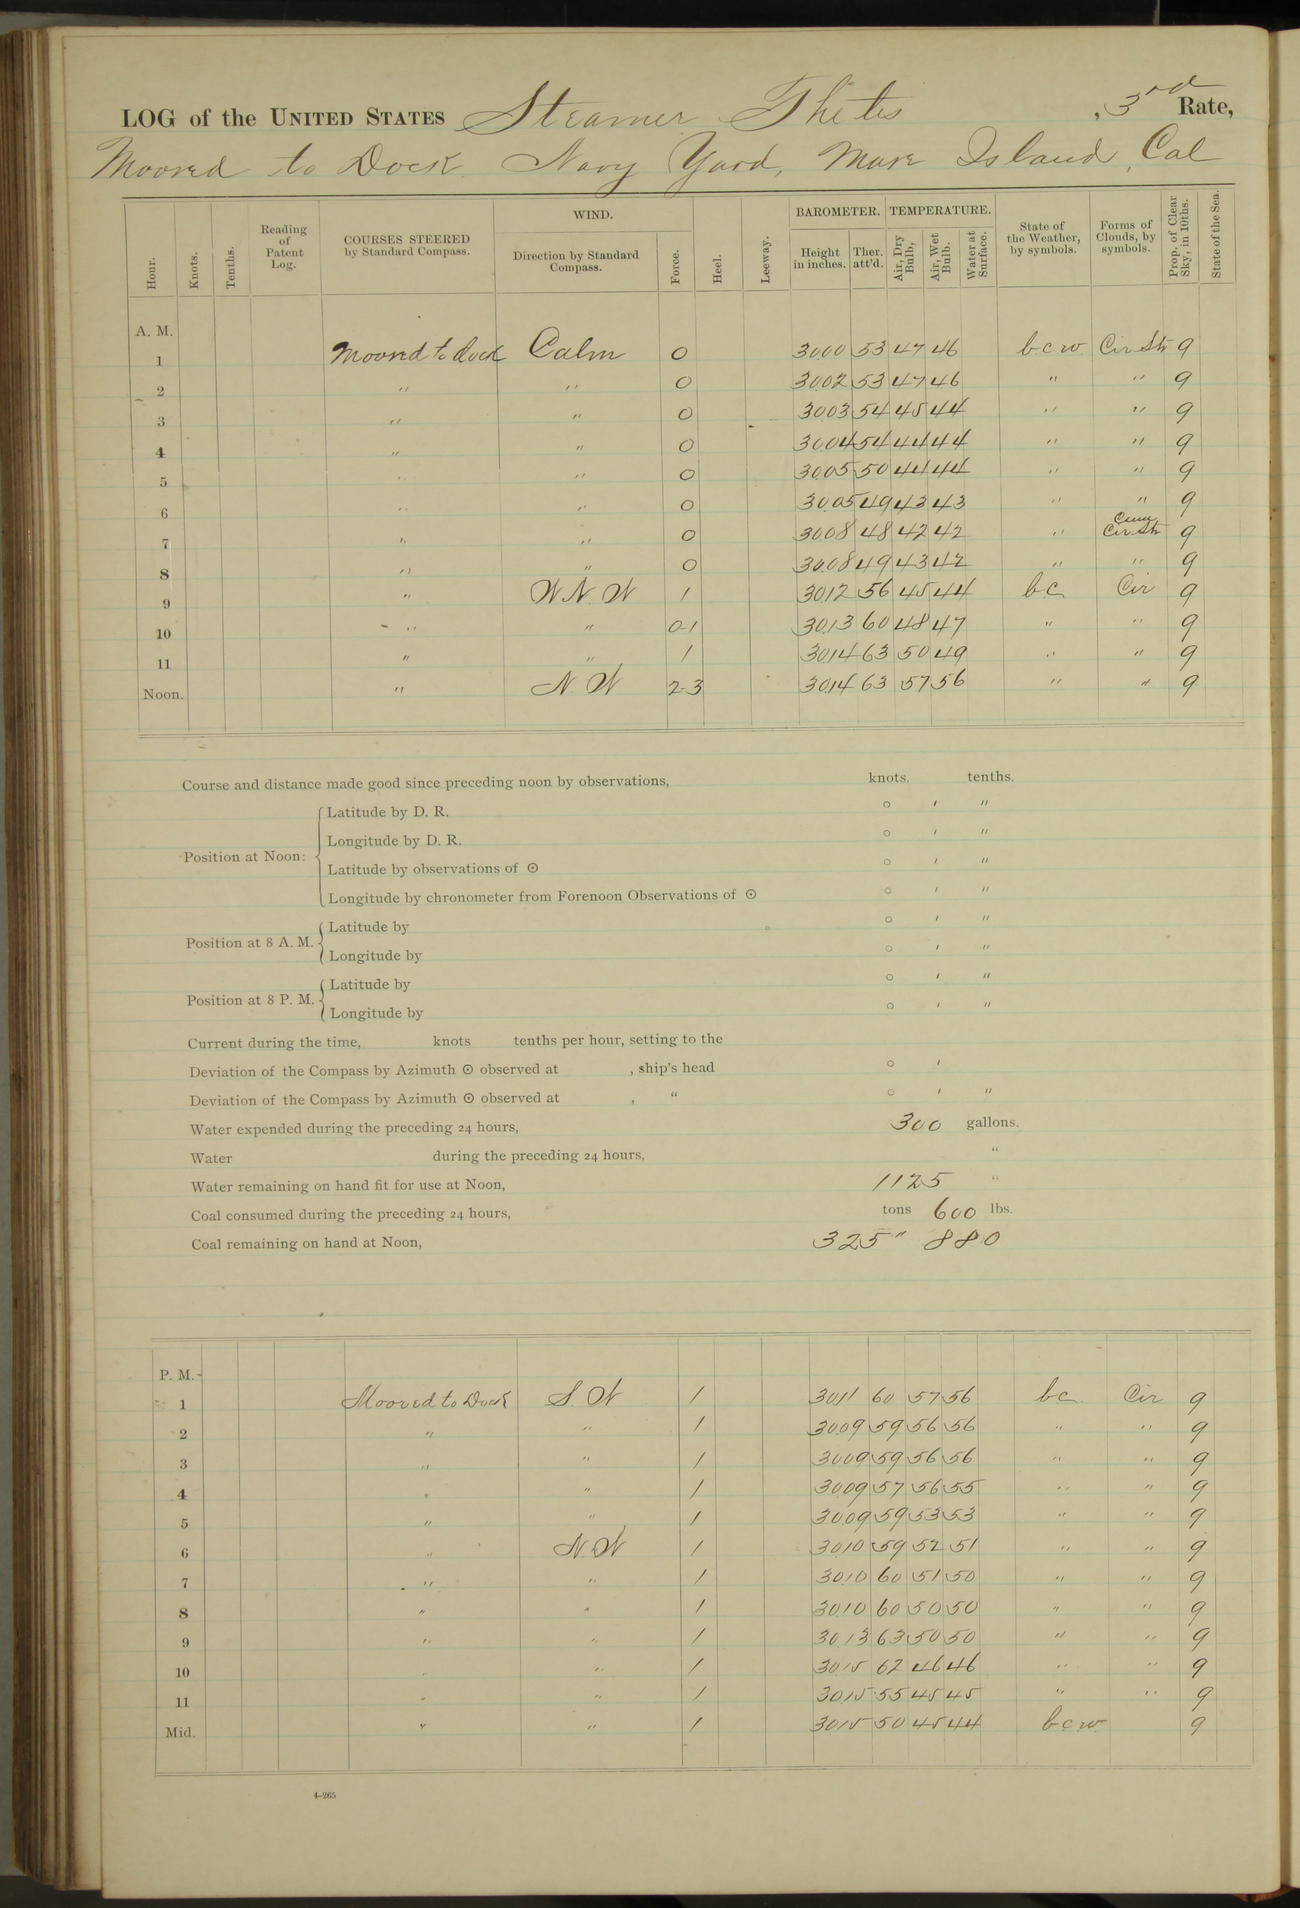 LOG of the UNITED STATES Steamer Thetis, 3rd Rate,
Moored to Dock Navy Yard, Mare Island, Cal
Hour. Knots. Tenths. Reading of Patent Log. COURSES STEERED by Standard Compass. WIND. Direction by Standard Compass. Force. Heel. Leeway. BAROMETER. Height in inches. Ther. att'd. TEMPERATURE. Air, Dry Bulb, Air, Wet Bulb. Water at Surface. State of the Weather, by symbols. Forms of Clouds, by symbols. Prop. of Clear Sky, in 10ths. State of the Sea.
A. M.
1 Moored to dock Calm 0 3000 53 47 46 b c w Cir Str 9
2 " " 0 3002 53 47 46 " " 9
3 " " 0 3003 54 45 44 " " 9
4 " " 0 3004 54 44 44 " " 9
5 " " 0 3005 50 44 44 " " 9
6 " " 0 3005 49 43 43 " " 9
7 " " 0 3008 48 42 42 " Cum Cir Str 9
8 " " 0 3008 49 43 42 " " 9
9 " W N. W 1 3012 56 45 44 b c Cir 9
10 " " 0-1 3013 60 48 47 " " 9
11 " " 1 3014 63 50 49 " " 9
Noon. " N W 2-3 3014 63 57 56 " " 9
Course and distance made good since preceding noon by observations, knots. tenths.
Position at Noon: Latitude by D. R. ° ′ ″
Longitude by D. R. ° ′ ″
Latitude by observations of ⊙ ° ′ ″
Longitude by chronometer from Forenoon Observations of ⊙ ° ′ ″
Position at 8 A. M. Latitude by ° ′ ″
Longitude by ° ′ ″
Position at 8 P. M. Latitude by ° ′ ″
Longitude by ° ′ ″
Current during the time, knots tenths per hour, setting to the
Deviation of the Compass by Azimuth ⊙ observed at , ship's head ° ′
Deviation of the Compass by Azimuth ⊙ observed at , " ° ′ ″
Water expended during the preceding 24 hours, 300 gallons.
Water during the preceding 24 hours, "
Water remaining on hand fit for use at Noon, 1125 "
Coal consumed during the preceding 24 hours, tons 600 lbs.
Coal remaining on hand at Noon, 325 " 880
P. M.
1 Moored to Dock S. W 1 3011 60 57 56 b c Cir 9
2 " " 1 3009 59 56 56 " " 9
3 " " 1 3009 59 56 56 " " 9
4 " " 1 3009 57 56 55 " " 9
5 " " 1 3009 59 53 53 " " 9
6 " N. W 1 3010 59 52 51 " " 9
7 " " 1 3010 60 51 50 " " 9
8 " " 1 3010 60 50 50 " " 9
9 " " 1 3013 63 50 50 " " 9
10 " " 1 3015 62 46 46 " " 9
11 " " 1 3015 55 45 45 " " 9
Mid. " " 1 3015 50 45 44 b c w 9
4-265